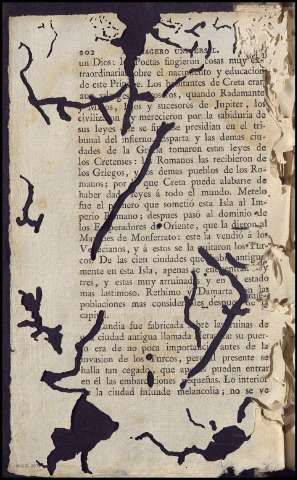 202 VIAGERO UNIVERSAL.
un Dios: los Poetas fingieron cosas muy ex-
traordinarias sobre el nacimiento y educacion
de este Principe. Los habitantes de Creta eran
quando Radamante
y Minos, hijos y sucesores de Jupiter, los
civilizaron y merecieron por la sabiduria de
sus leyes que se presidian en el tri-
bunal del infierno. Esparta y las demas ciu-
dades de la Grecia tomaron estas leyes de
los Cretenses: los Romanos las recibieron de
los Griegos, y los demas pueblos de los Ro-
manos; por lo que Creta puede alabarse de
haber dado leyes á todo el mundo. Metelo
fue el primero que sometió esta Isla al Im-
perio Romano; despues pasó al dominio de
los Emperadores de Oriente, que la dieron al
Marques de Monferrato: este la vendió á los
Venecianos, y á estos se la quitaron los Tur-
cos. De las cien ciudades que antigua-
mente en esta Isla, apenas se encuentran
tres, y estas muy arruinadas y en el estado
mas lastimoso. Rethimo y Damarta son las
poblaciones mas considerables despues de la
capital.
Candia fue fabricada sobre las ruinas de
la ciudad antigua llamada su puer-
to era de no poca importancia antes de la
invasion de los Turcos, pero al presente se
halla tan cegado, que solo pueden entrar
en él las embarcaciones pequeñas. Lo interior
de la ciudad infunde melancolia; no se ve